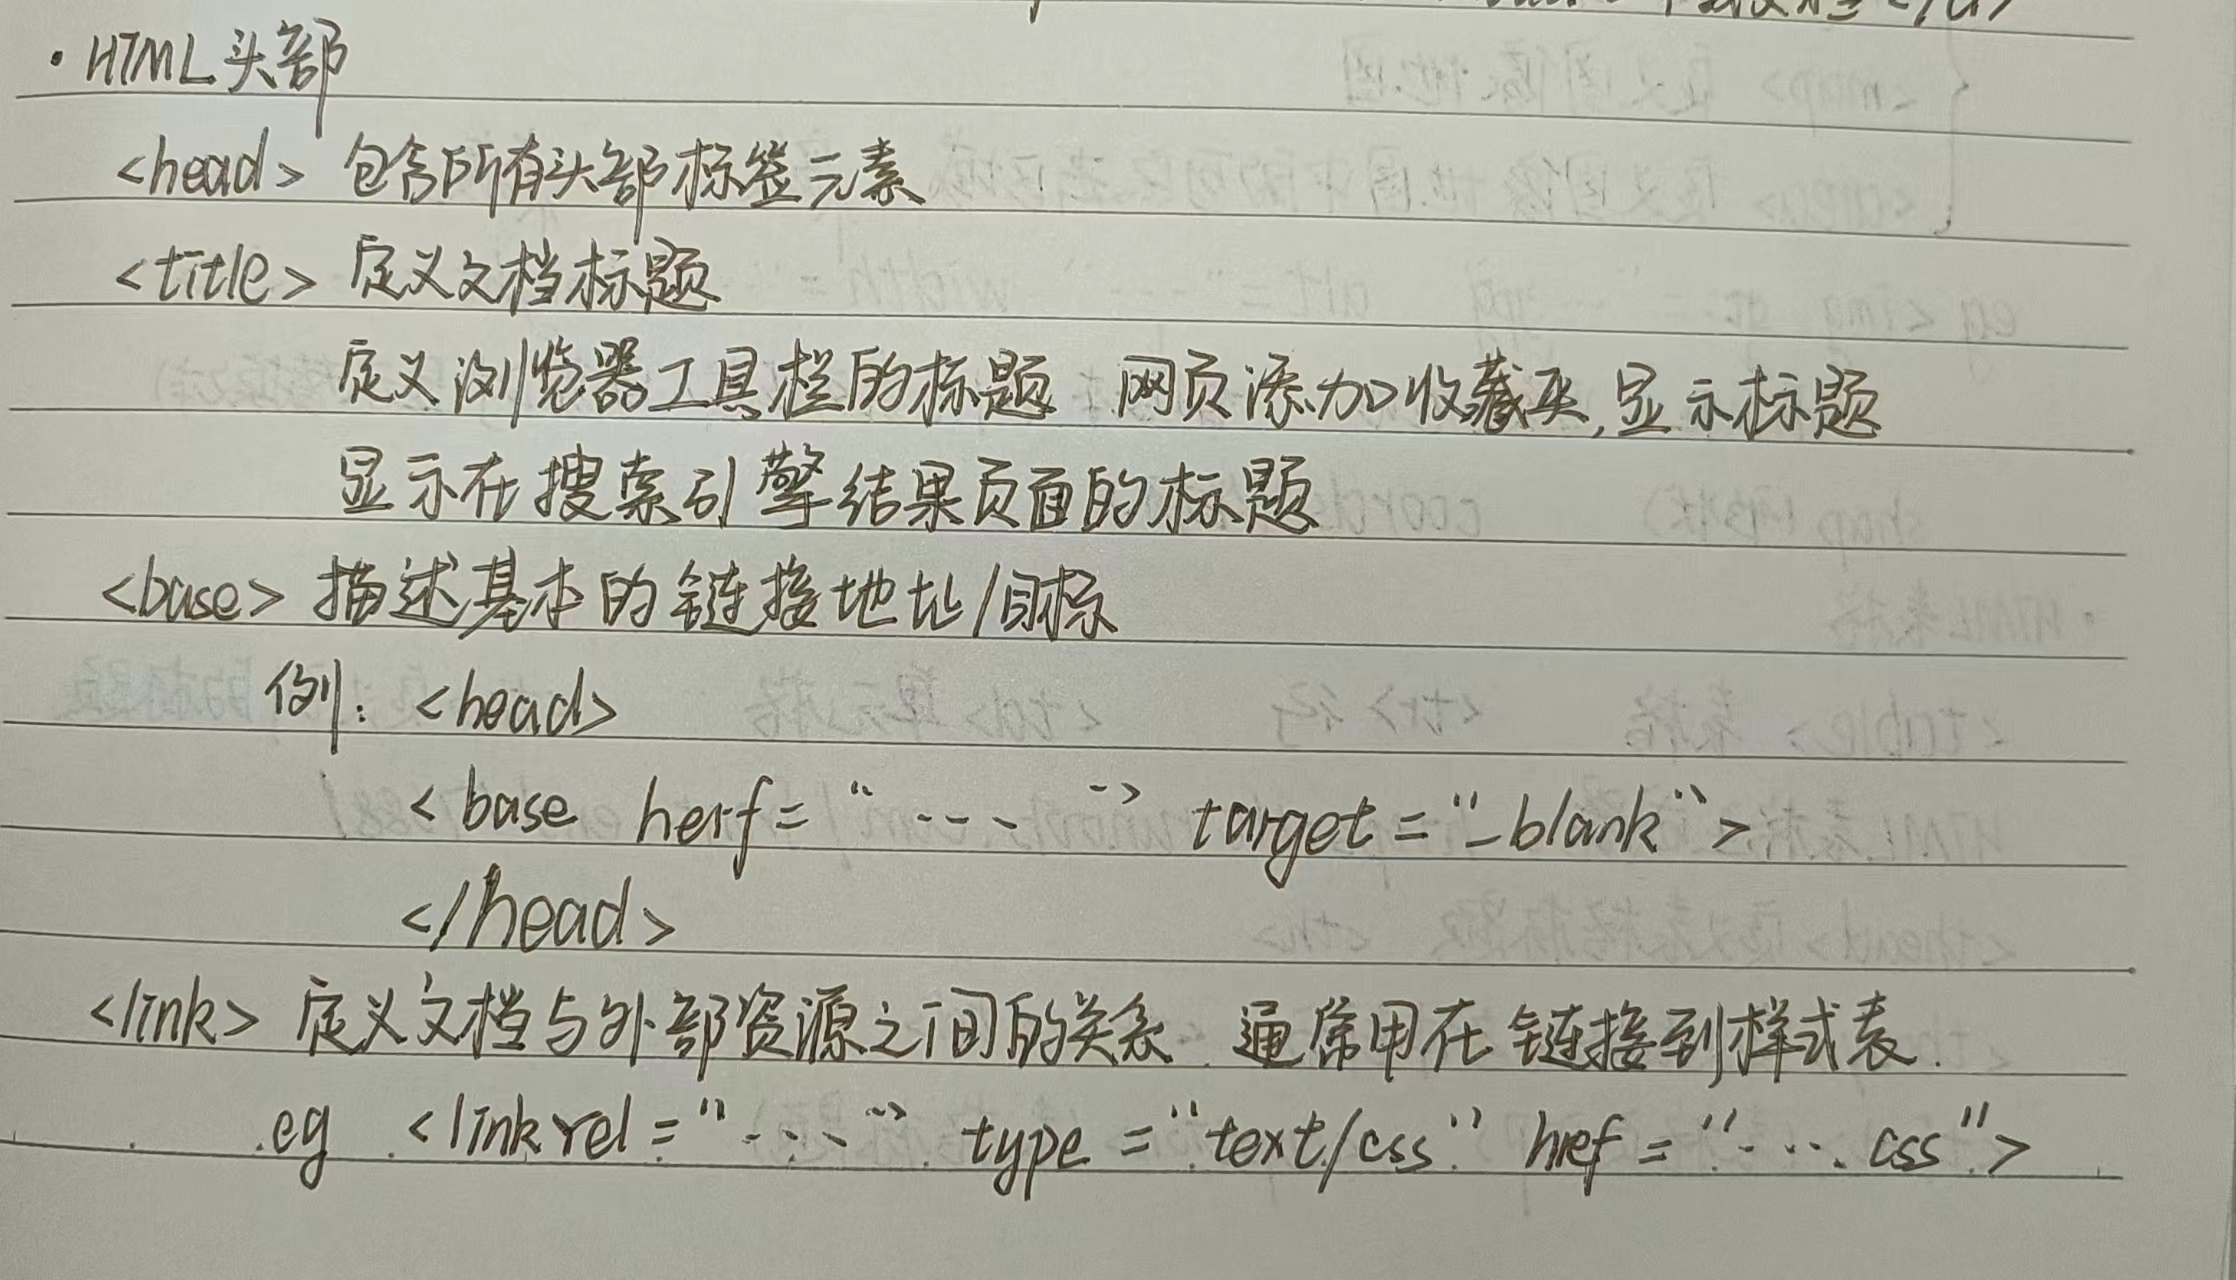 ·HTML头部
<head> 包含所有头部标签元素
<title> 定义文档标题
定义浏览器工具栏的标题 网页添加收藏夹,显示标题
显示在搜索引擎结果页面的标题
<base> 描述基本的链接地址/目标
例: <head>
<base herf="----" target="_blank">
</head>
<link> 定义文档与外部资源之间的关系 通常用在链接到样式表.
eg <link rel="····" type="text/css" href="···· css">